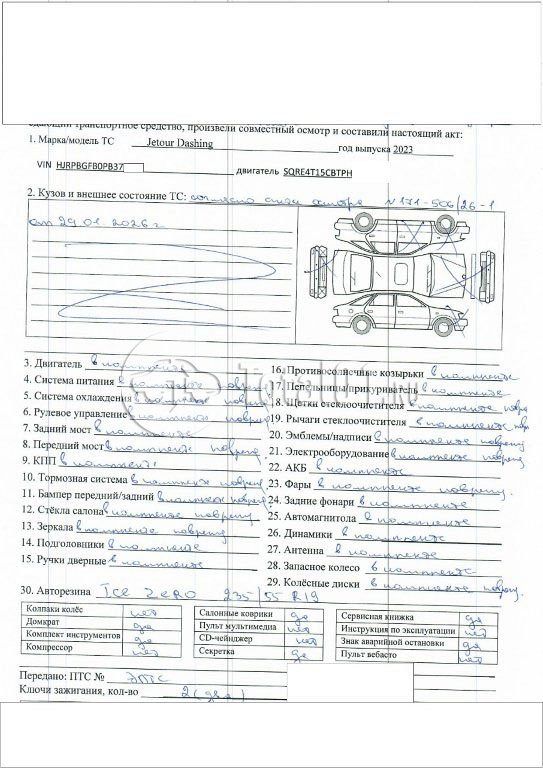 едающий транспортное средство, произвели совместный осмотр и составили настоящий акт:
1. Марка/модель ТС Jetour Dashing год выпуска 2023
VIN HJRPBGFB0PB37 двигатель SQRE4T15CBTPH
2. Кузов и внешнее состояние ТС: согласно акта осмотра N 171-506/26-1
от 29.01.2026 г.
3. Двигатель в комплекте
4. Система питания в комплекте поврежд
5. Система охлаждения в комплекте поврежд
6. Рулевое управление в комплекте поврежд
7. Задний мост в комплекте
8. Передний мост в комплекте поврежд
9. КПП в комплекте
10. Тормозная система в комплекте поврежд
11. Бампер передний/задний в комплекте поврежд
12. Стёкла салона в комплекте поврежд
13. Зеркала в комплекте поврежд
14. Подголовники в комплекте
15. Ручки дверные в комплекте
16. Противосолнечные козырьки в комплекте
17. Пепельницы/прикуриватель в комплекте
18. Щетки стеклоочистителя в комплекте повре
19. Рычаги стеклоочистителя в комплекте повр
20. Эмблемы/надписи в комплекте поврежд
21. Электрооборудование в комплекте поврежд
22. АКБ в комплекте
23. Фары в комплекте поврежд.
24. Задние фонари в комплекте
25. Автомагнитола в комплекте
26. Динамики в комплекте
27. Антенна в комплекте
28. Запасное колесо в комплекте
29. Колёсные диски в комплекте повреж.
30. Авторезина Ice Zero 235/55 R19
Колпаки колёс нет
Домкрат да
Комплект инструментов да
Компрессор нет
Салонные коврики да
Пульт мультимедиа нет
CD-чейнджер нет
Секретка да
Сервисная книжка да
Инструкция по эксплуатации нет
Знак аварийной остановки да
Пульт вебасто нет
Передано: ПТС № ЭПТС
Ключи зажигания, кол-во 2 (два)